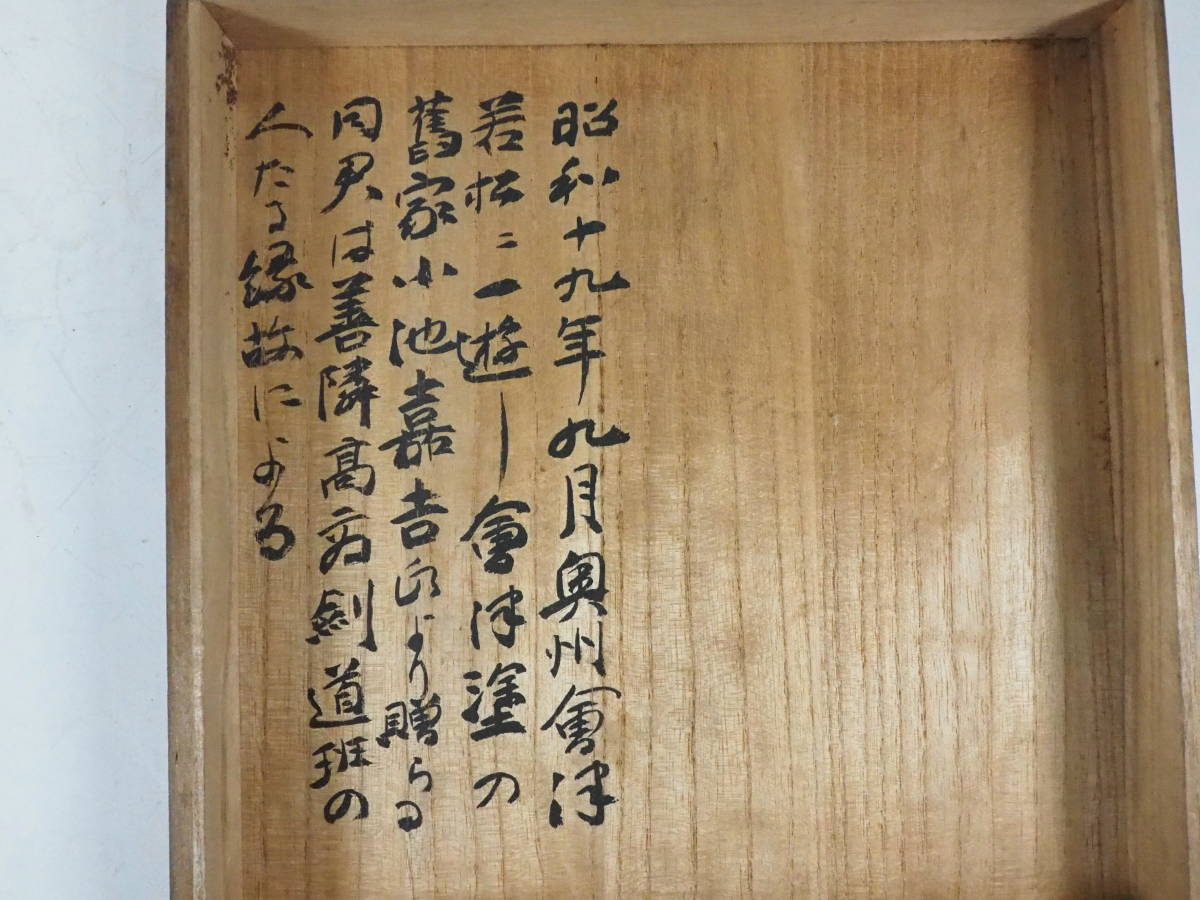 昭和十九年九月奥州會津
若松ニ一遊し會津塗の
舊家小池嘉吉氏より贈らる
同君は善隣高商剣道班の
人たる縁故による